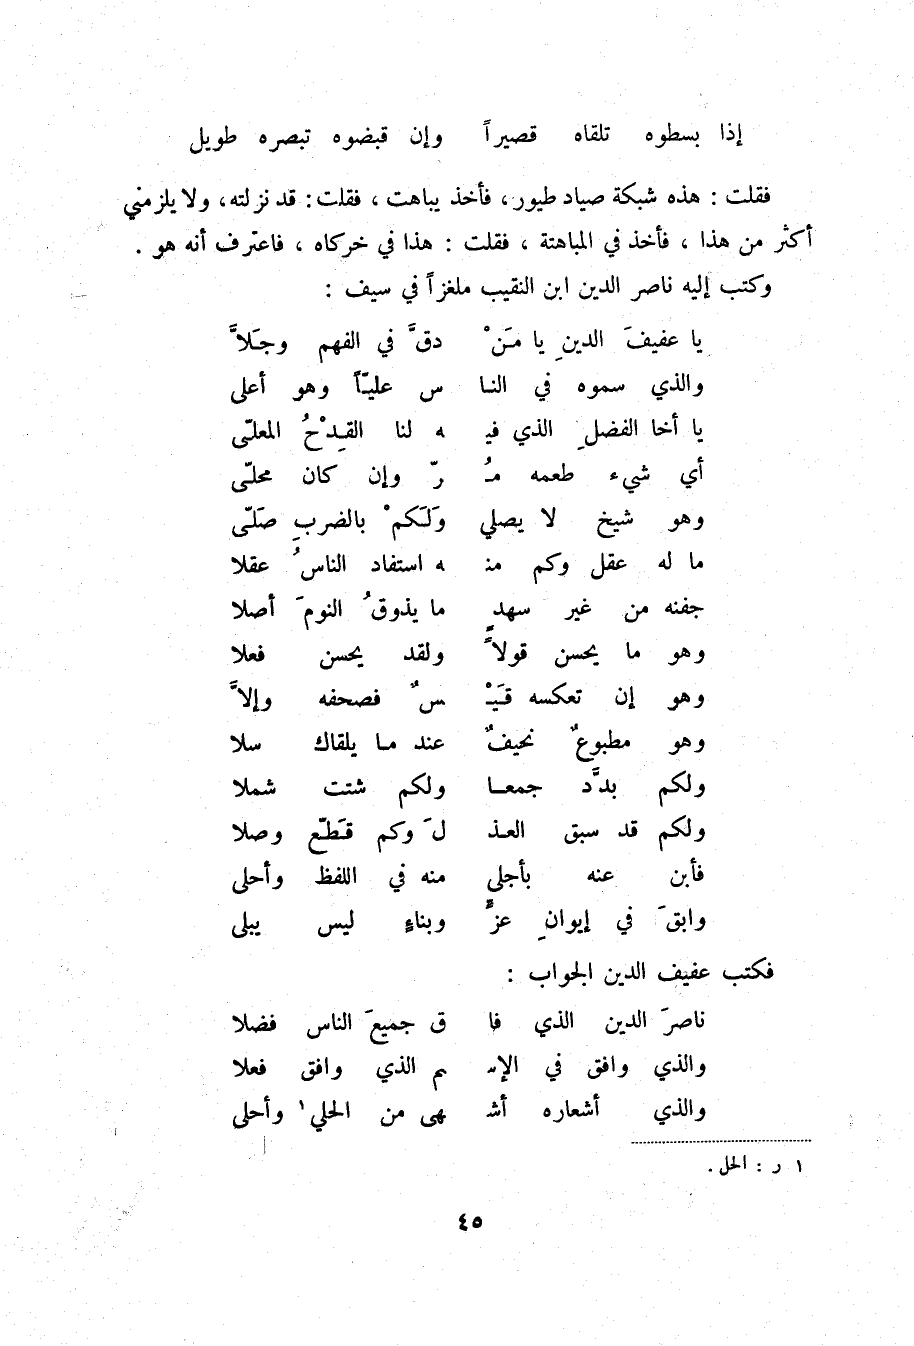 إذا بسطوه تلقاه قصيراً وإن قبضوه تبصره طويل
فقلت : هذه شبكة صياد طيور ، فأخذ يباهت ، فقلت : قد نزلته ، ولا يلزمني
أكثر من هذا ، فأخذ في المباهتة ، فقلت : هذا في خركاه ، فاعترف أنه هو .
وكتب إليه ناصر الدين ابن النقيب ملغزاً في سيف :
يا عفيفَ الدينِ يا مَنْ دقَّ في الفهم وجَلاَّ
والذي سموه في النا س عليّاً وهو أعلى
يا أخا الفضلِ الذي فيـ ـه لنا القِدْحُ المعلّى
أي شيء طعمه مُـ ـرّ وإن كان محلّى
وهو شيخ لا يصلي وَلَكمْ بالضربِ صَلّى
ما له عقل وكم منـ ـه استفاد الناسُ عقلا
جفنه من غير سهدٍ ما يذوقُ النومَ أصلا
وهو ما يحسن قولاً ولقد يحسن فعلا
وهو إن تعكسه قَيْـ ـسٌ فصحفه وإلاَّ
وهو مطبوعٌ نحيفٌ عند ما يلقاك سلا
ولكم بدَّد جمعا ولكم شتت شملا
ولكم قد سبق العذ لَ وكم قَطّع وصلا
فأبن عنه بأجلى منه في اللفظ وأحلى
وابقَ في إيوانِ عزٍّ وبناءٍ ليس يبلى
فكتب عفيف الدين الجواب :
ناصرَ الدين الذي فا ق جميعَ الناس فضلا
والذي وافق في الإسـ ـم الذي وافق فعلا
والذي أشعاره أشـ ـهى من الحلي١ وأحلى
١ ر : الحل .
٤٥